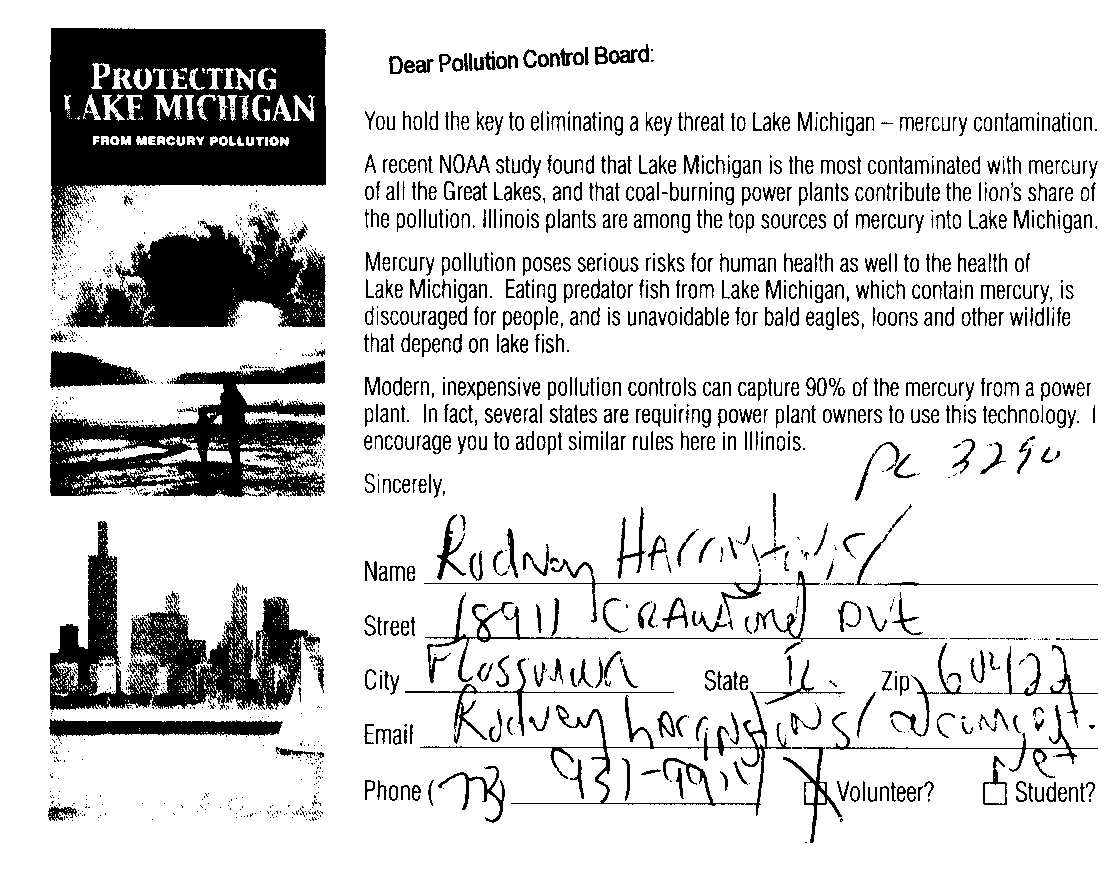 PROTECTING
LAKE MICHIGAN
FROM MERCURY POLLUTION
Dear Pollution Control Board:
You hold the key to eliminating a key threat to Lake Michigan – mercury contamination.
A recent NOAA study found that Lake Michigan is the most contaminated with mercury
of all the Great Lakes, and that coal-burning power plants contribute the lion's share of
the pollution. Illinois plants are among the top sources of mercury into Lake Michigan.
Mercury pollution poses serious risks for human health as well to the health of
Lake Michigan. Eating predator fish from Lake Michigan, which contain mercury, is
discouraged for people, and is unavoidable for bald eagles, loons and other wildlife
that depend on lake fish.
Modern, inexpensive pollution controls can capture 90% of the mercury from a power
plant. In fact, several states are requiring power plant owners to use this technology. I
encourage you to adopt similar rules here in Illinois.
PC 3290
Sincerely,
Name Rodney
Street 18911 CRAWford
City Flossmoor State IL. Zip 60422
Email
Net
Phone ( 931-
Volunteer? Student?